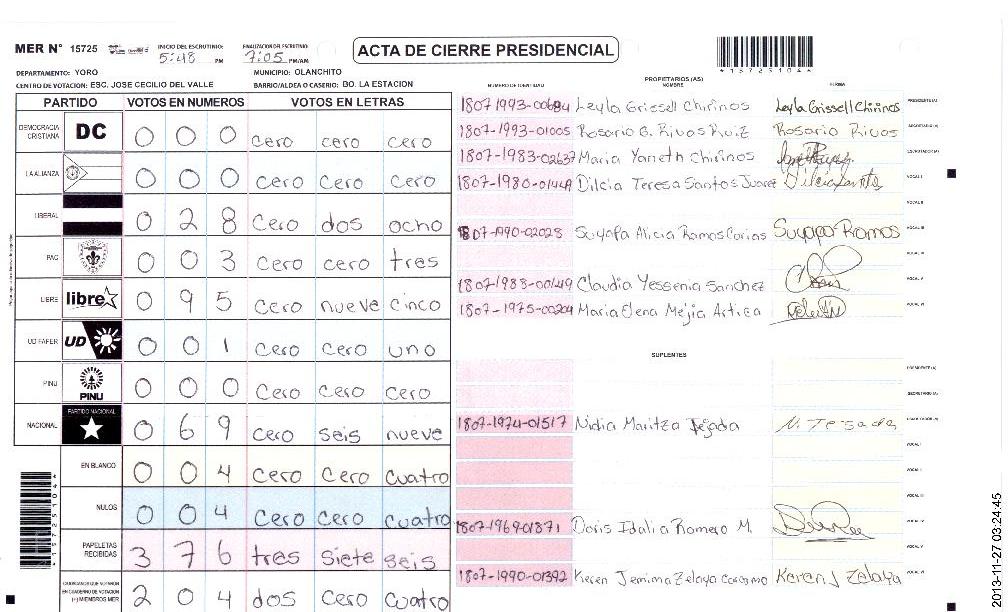 MER N° 15725
INICIO DEL ESCRUTINIO: 5:48 PM
FINALIZACION DEL ESCRUTINIO: 7:05 PM/AM
ACTA DE CIERRE PRESIDENCIAL
*15725104*
DEPARTAMENTO: YORO
MUNICIPIO: OLANCHITO
CENTRO DE VOTACION: ESC. JOSE CECILIO DEL VALLE
BARRIO/ALDEA O CASERIO: BO. LA ESTACION
PARTIDO VOTOS EN NUMEROS VOTOS EN LETRAS
DEMOCRACIA CRISTIANA DC 0 0 0 cero cero cero
LA ALIANZA 0 0 0 cero cero cero
LIBERAL 0 2 8 cero dos ocho
PAC 0 0 3 cero cero tres
LIBRE libre 0 9 5 cero nueve cinco
UD FAPER UD 0 0 1 cero cero uno
PINU PINU 0 0 0 cero cero cero
NACIONAL PARTIDO NACIONAL 0 6 9 cero seis nueve
EN BLANCO 0 0 4 cero cero cuatro
NULOS 0 0 4 cero cero cuatro
PAPELETAS RECIBIDAS 3 7 6 tres siete seis
CIUDADANOS QUE VOTARON EN CUADERNO DE VOTACION (+) MIEMBROS MER 2 0 4 dos cero cuatro
PROPIETARIOS (AS)
NUMERO DE IDENTIDAD NOMBRE FIRMA
1807-1993-00684 Leyla Grissell Chirinos Leyla Grissell Chirinos PRESIDENTE (A)
1807-1993-01005 Rosario G. Rivas Ruiz Rosario Rivas SECRETARIO (A)
1807-1983-02637 Maria Yaneth Chirinos ESCRUTADOR (A)
1807-1980-01449 Dilcia Teresa Santos Juarez Dilcia Santos VOCAL I
VOCAL II
1807-1990-02028 Suyapa Alicia Ramos Carias Suyapa Ramos VOCAL III
VOCAL IV
1807-1983-00149 Claudia Yessenia Sanchez VOCAL V
1807-1975-00204 Maria Elena Mejia Artica VOCAL VI
SUPLENTES
PRESIDENTE (A)
SECRETARIO (A)
1807-1974-01517 Nidia Maritza Tejada N. Tejada ESCRUTADOR (A)
VOCAL I
VOCAL II
VOCAL III
1807-1969-01871 Doris Idalia Romero M. VOCAL IV
VOCAL V
1807-1990-01392 Keren Jemima Zelaya Keren J Zelaya VOCAL VI
*15725104*
2013-11-27 03:24:45